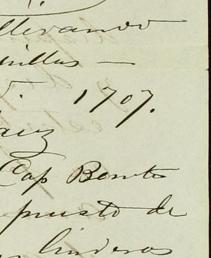 llevando
nillas —
1707.
aez
Cap Benito
puesto de
linderos